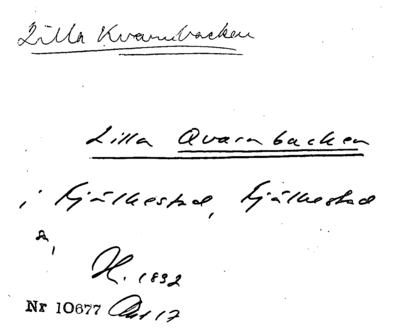 Lilla Kvarnbacken
Lilla Qvarnbacken
i Kjälkestad, Kjälkestad
s,
H. 1892
Nr 10677 Akt 17